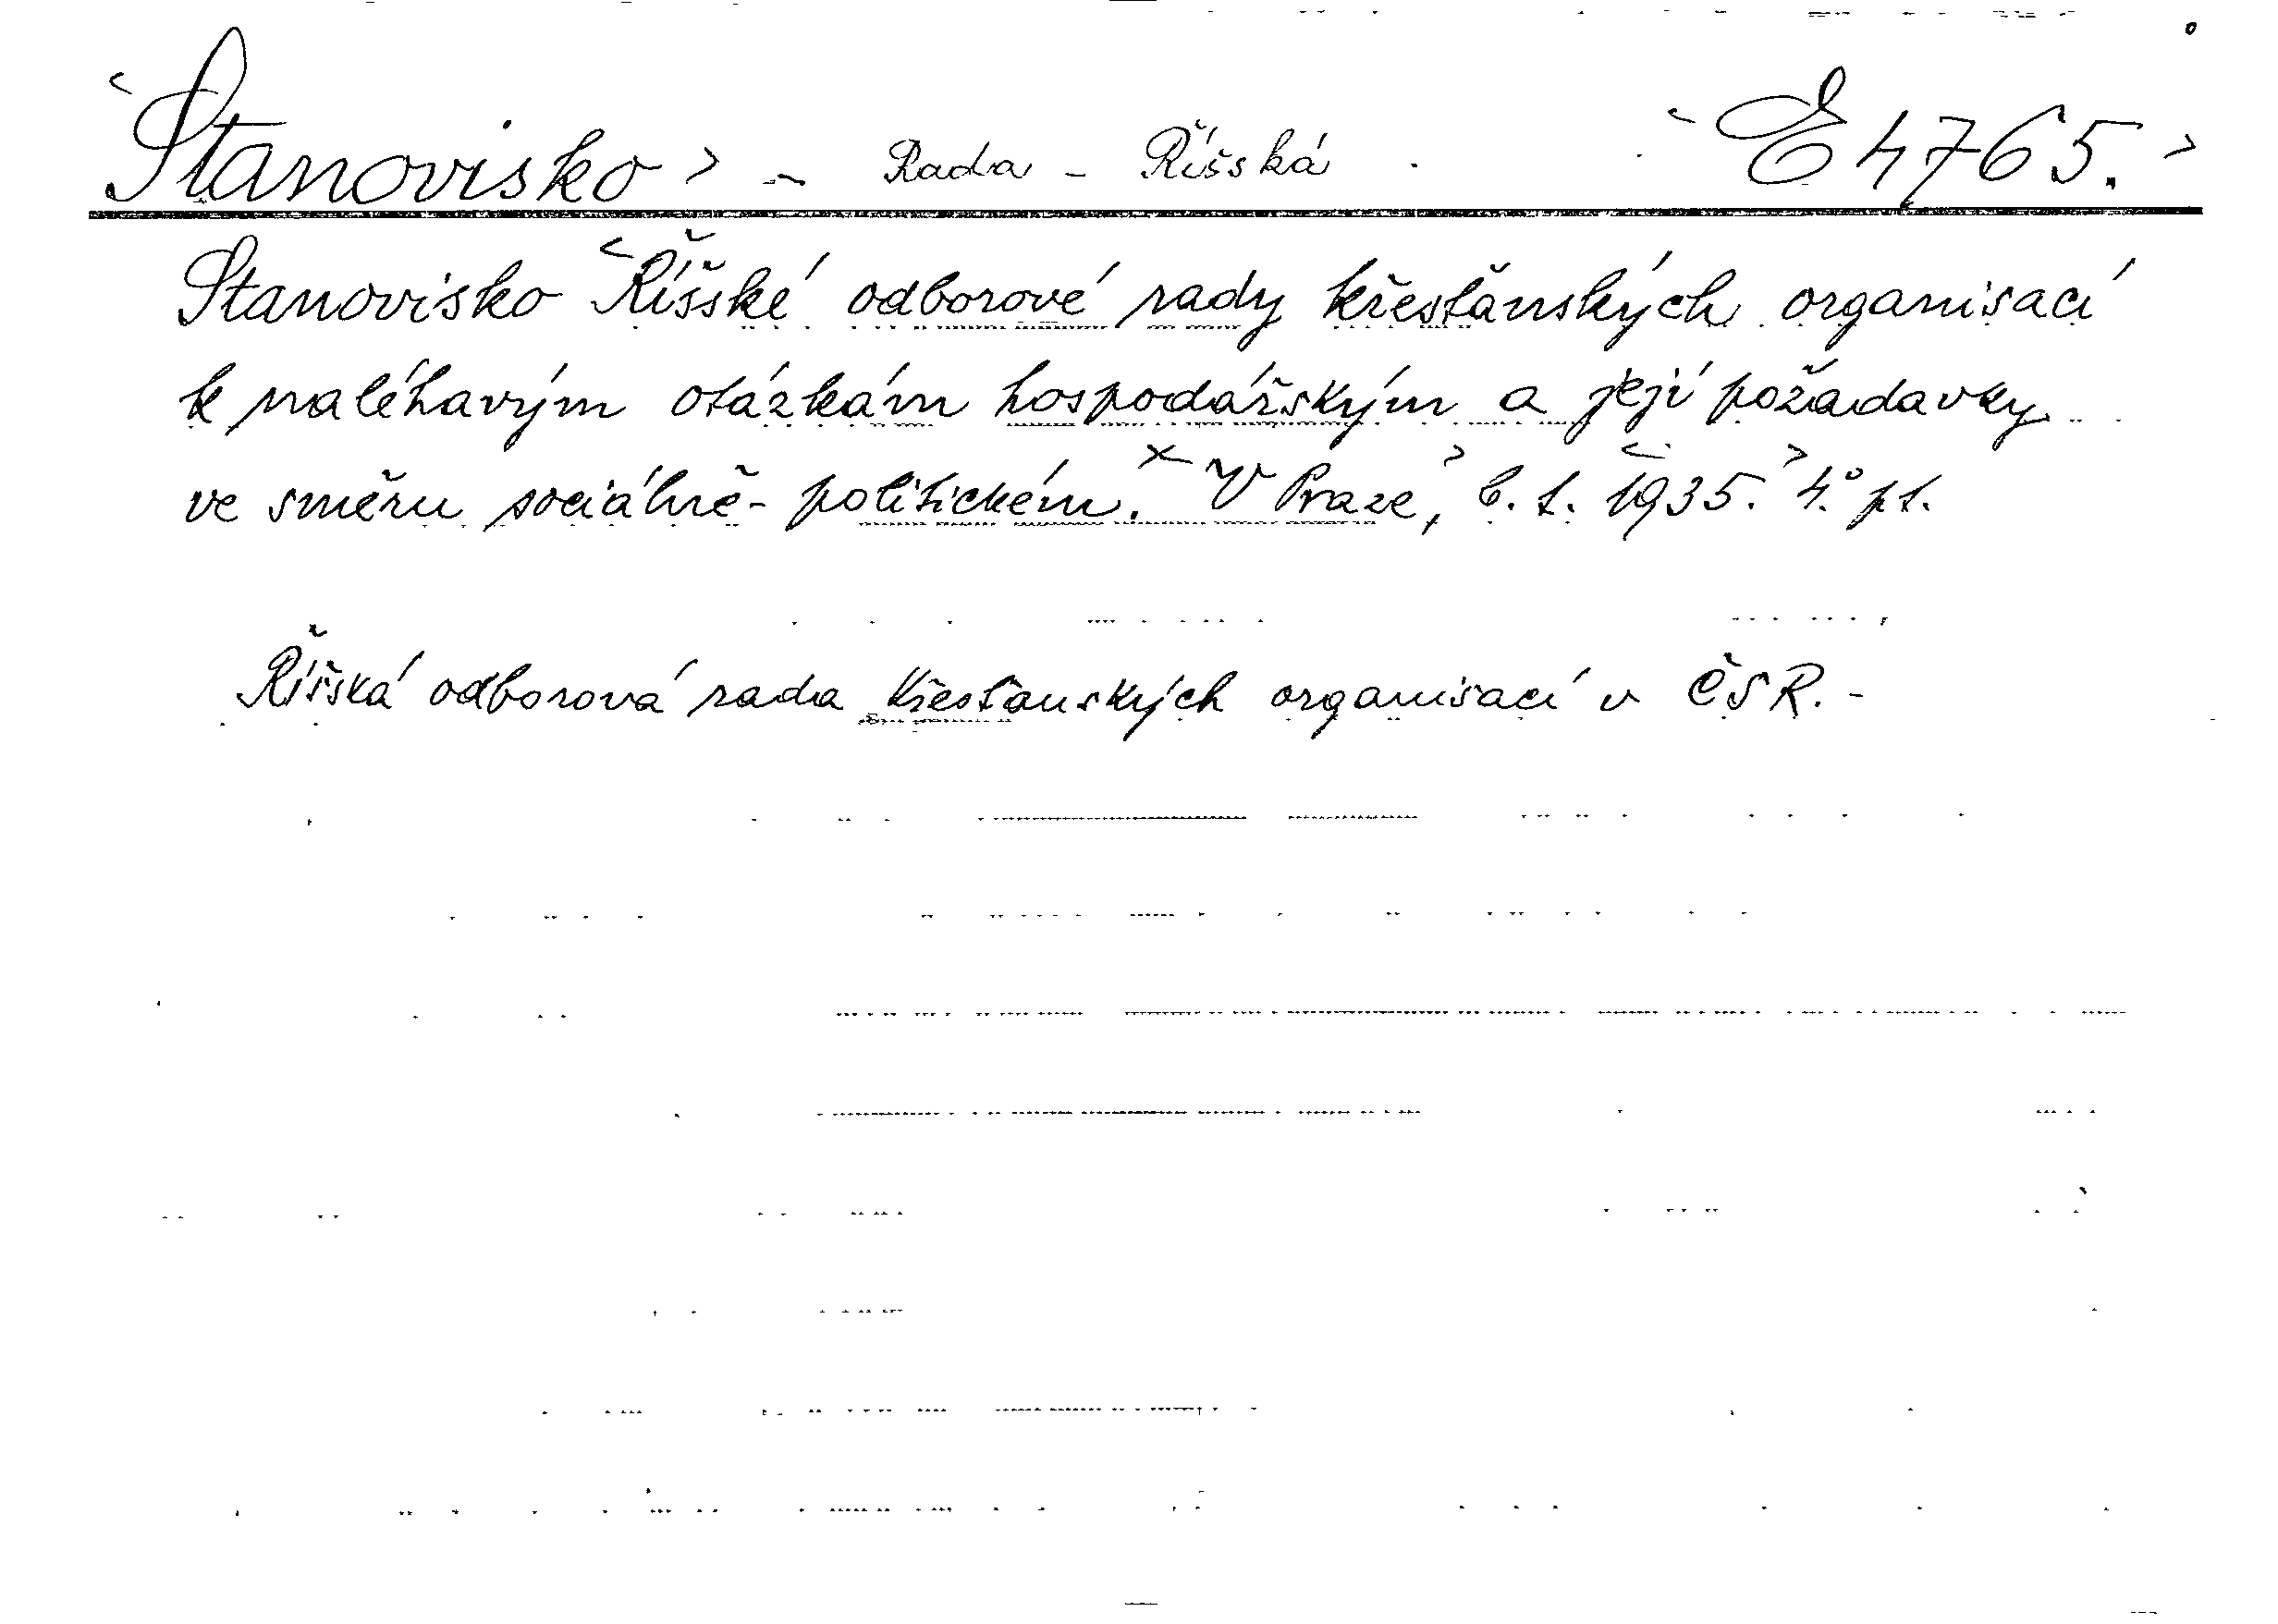 <Stanovisko> - Rada - Říšská <E 4765.>
Stanovisko <Říšské odborové rady křesťánských organisací
k naléhavým otázkám hospodářským a její požadavky
ve směru sociálně-politickém. V Praze,> b. t. <1935.> 4.° pt.
Říšská odborová rada křesťanských organisací v ČSR.-